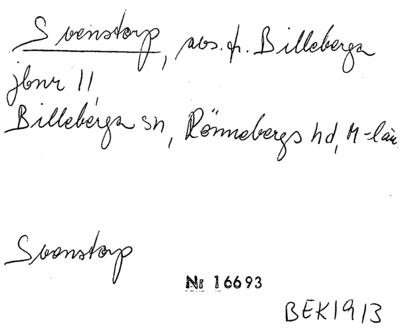 Svenstorp, avs. fr. Billeberga
jbnr 11
Billeberga sn, Rönnebergs hd, M-län
Svenstorp
Nr 16693
BEK1913